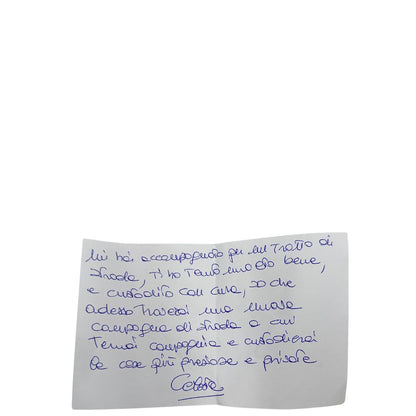 Mi hai accompagnato per un tratto di
strada, ti ho tenuto bene,
e custodito con cura, so che
adesso troverai una nuova
compagna di strada a cui
terrai compagnia e custodirai
le cose più preziose e private